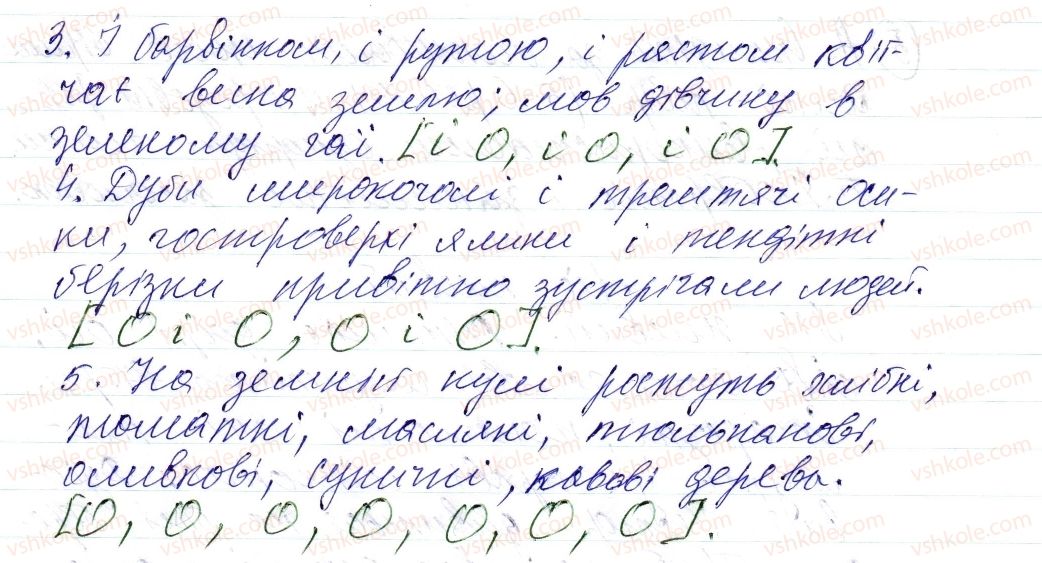 3. І барвінком, і рутою, і рястом квіт-
чає весна землю; мов дівчину в
зеленому гаї. [і О, і О, і О].
4. Дуби широкочолі і тремтячі оси-
ки, гостроверхі ялини і тендітні
берізки привітно зустрічали людей.
[О і О, О і О].
5. На земній кулі ростуть хлібні,
томатні, масляні, тюльпанові,
оливкові, суничні, кавові дерева.
[О, О, О, О, О, О, О].